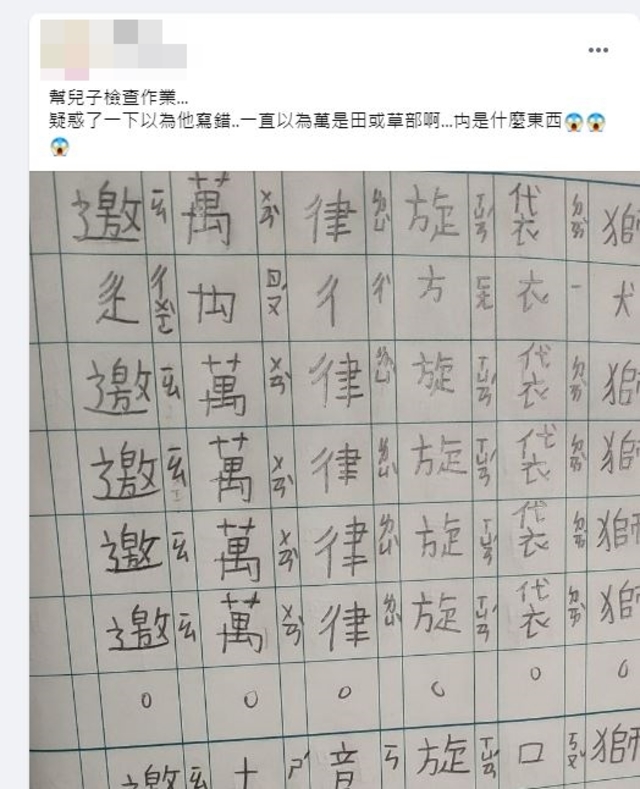 幫兒子檢查作業...
疑惑了一下以為他寫錯..一直以為萬是田或草部啊...禸是什麼東西😱😱
😱
邀ㄧㄠ 萬ㄨㄢˋ 律ㄌㄩˋ 旋ㄒㄩㄢˊ 袋ㄉㄞˋ 獅
辵ㄔㄨㄛˋ 禸ㄖㄡˊ 彳ㄔˋ 方ㄈㄤ 衣ㄧ 犬
邀ㄧㄠ 萬ㄨㄢˋ 律ㄌㄩˋ 旋ㄒㄩㄢˊ 袋ㄉㄞˋ 獅
邀ㄧㄠ 萬ㄨㄢˋ 律ㄌㄩˋ 旋ㄒㄩㄢˊ 袋ㄉㄞˋ 獅
邀ㄧㄠ 萬ㄨㄢˋ 律ㄌㄩˋ 旋ㄒㄩㄢˊ 袋ㄉㄞˋ 獅
邀ㄧㄠ 萬ㄨㄢˋ 律ㄌㄩˋ 旋ㄒㄩㄢˊ 袋ㄉㄞˋ 獅
0 0 0 0 0 0
邀ㄧㄠ 音 旋ㄒㄩㄢˊ 口ㄎㄡˇ 獅